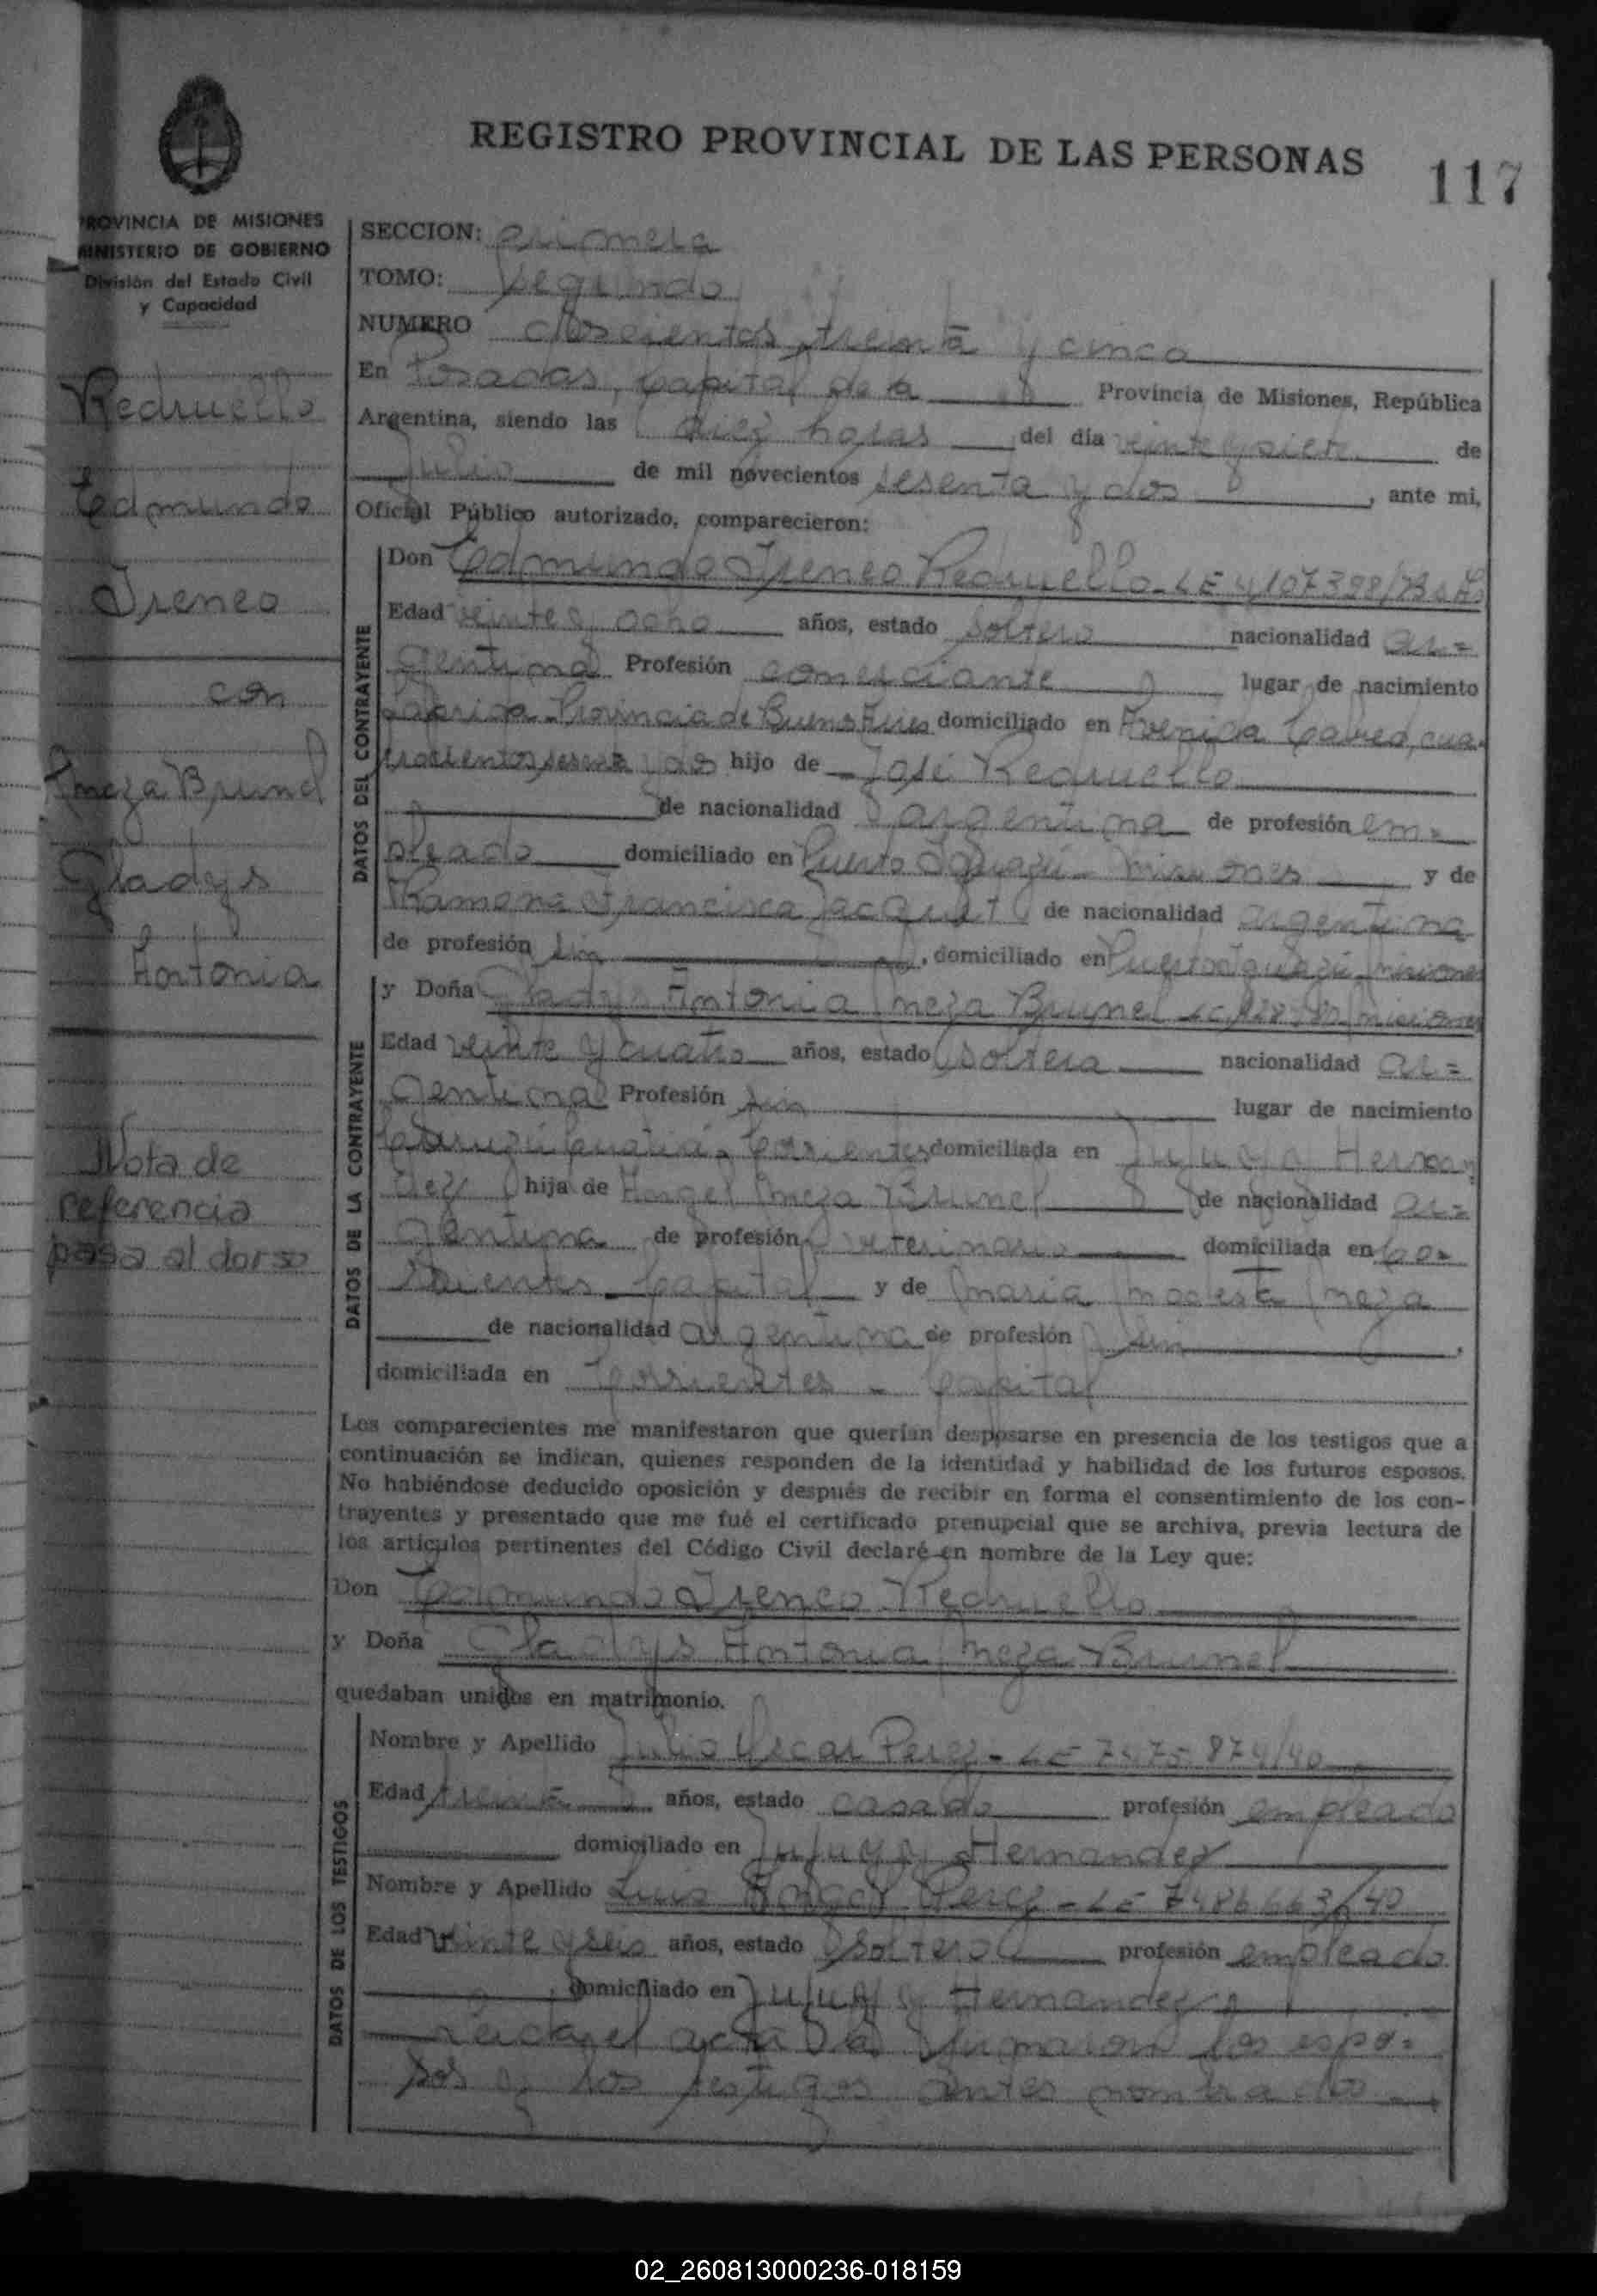 REGISTRO PROVINCIAL DE LAS PERSONAS
117
PROVINCIA DE MISIONES
MINISTERIO DE GOBIERNO
División del Estado Civil
y Capacidad
Redruello
Edmundo
Ireneo
con
Meza Brunel
Gladys
Antonia
Nota de
referencia
pasa al dorso
SECCION: primera
TOMO: segundo
NUMERO doscientos treinta y cinco
En Posadas, Capital de la Provincia de Misiones, República
Argentina, siendo las diez horas del día veinte y siete de
Julio de mil novecientos sesenta y dos, ante mi,
Oficial Público autorizado, comparecieron:
DATOS DEL CONTRAYENTE
Don Edmundo Ireneo Redruello - LE 4107398/Bs As
Edad veinte y ocho años, estado soltero nacionalidad ar=
gentina Profesión comerciante lugar de nacimiento
Provincia de Buenos Aires domiciliado en Avenida Cabred, cua=
trocientos sesenta y dos hijo de José Redruello
de nacionalidad argentina de profesión em=
pleado domiciliado en Puerto Iguazú - Misiones y de
Ramona Francisca Jacquet de nacionalidad argentina
de profesión sin, domiciliado en Puerto Iguazú Misiones
DATOS DE LA CONTRAYENTE
y Doña Gladys Antonia Meza Brunel LC Misiones
Edad veinte y cuatro años, estado soltera nacionalidad ar=
gentina Profesión sin lugar de nacimiento
Curuzú Cuatiá, Corrientes domiciliada en Jujuy y Hernan
dez hija de Angel Meza Brunel de nacionalidad ar=
gentina de profesión veterinario domiciliada en Co=
rrientes - Capital y de Maria Modesta Meza
de nacionalidad argentina de profesión sin,
domiciliada en Corrientes - Capital
Los comparecientes me manifestaron que querían desposarse en presencia de los testigos que a
continuación se indican, quienes responden de la identidad y habilidad de los futuros esposos.
No habiéndose deducido oposición y después de recibir en forma el consentimiento de los con-
trayentes y presentado que me fué el certificado prenupcial que se archiva, previa lectura de
los artículos pertinentes del Código Civil declaré en nombre de la Ley que:
Don Edmundo Ireneo Redruello
y Doña Gladys Antonia Meza Brunel
quedaban unidos en matrimonio.
DATOS DE LOS TESTIGOS
Nombre y Apellido Julio Oscar Perez - LE 7475874/40
Edad treinta años, estado casado profesión empleado
domiciliado en Jujuy y Hernandez
Nombre y Apellido Luis Angel Perez - LE 7486663/40
Edad veinte y seis años, estado soltero profesión empleado
, domiciliado en Jujuy y Hernandez
Leida el acta la firmaron los espo=
sos y los testigos antes nombrados
02_260813000236-018159